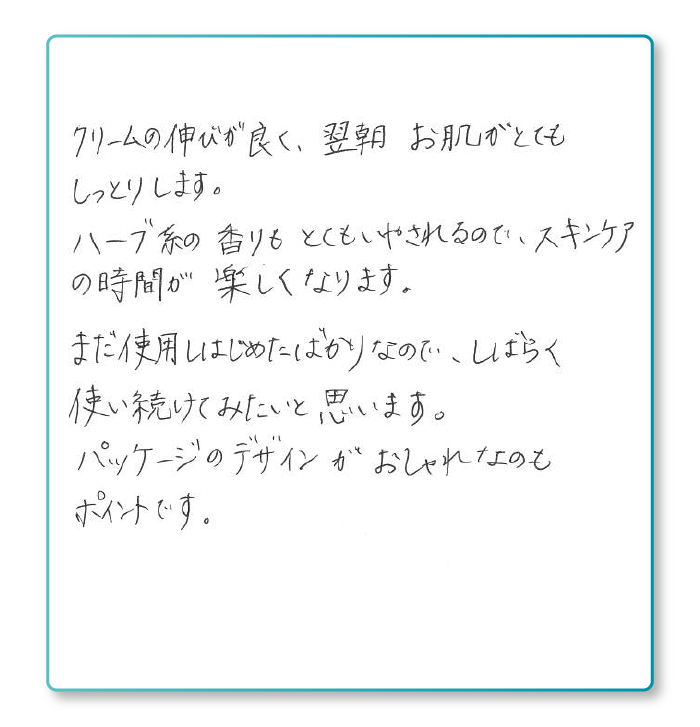 クリームの伸びが良く、翌朝 お肌がとても
しっとりします。
ハーブ系の 香りも とてもいやされるので、スキンケア
の時間が 楽しくなります。
まだ使用しはじめたばかりなので、しばらく
使い続けてみたいと思います。
パッケージのデザインが おしゃれなのも
ポイントです。